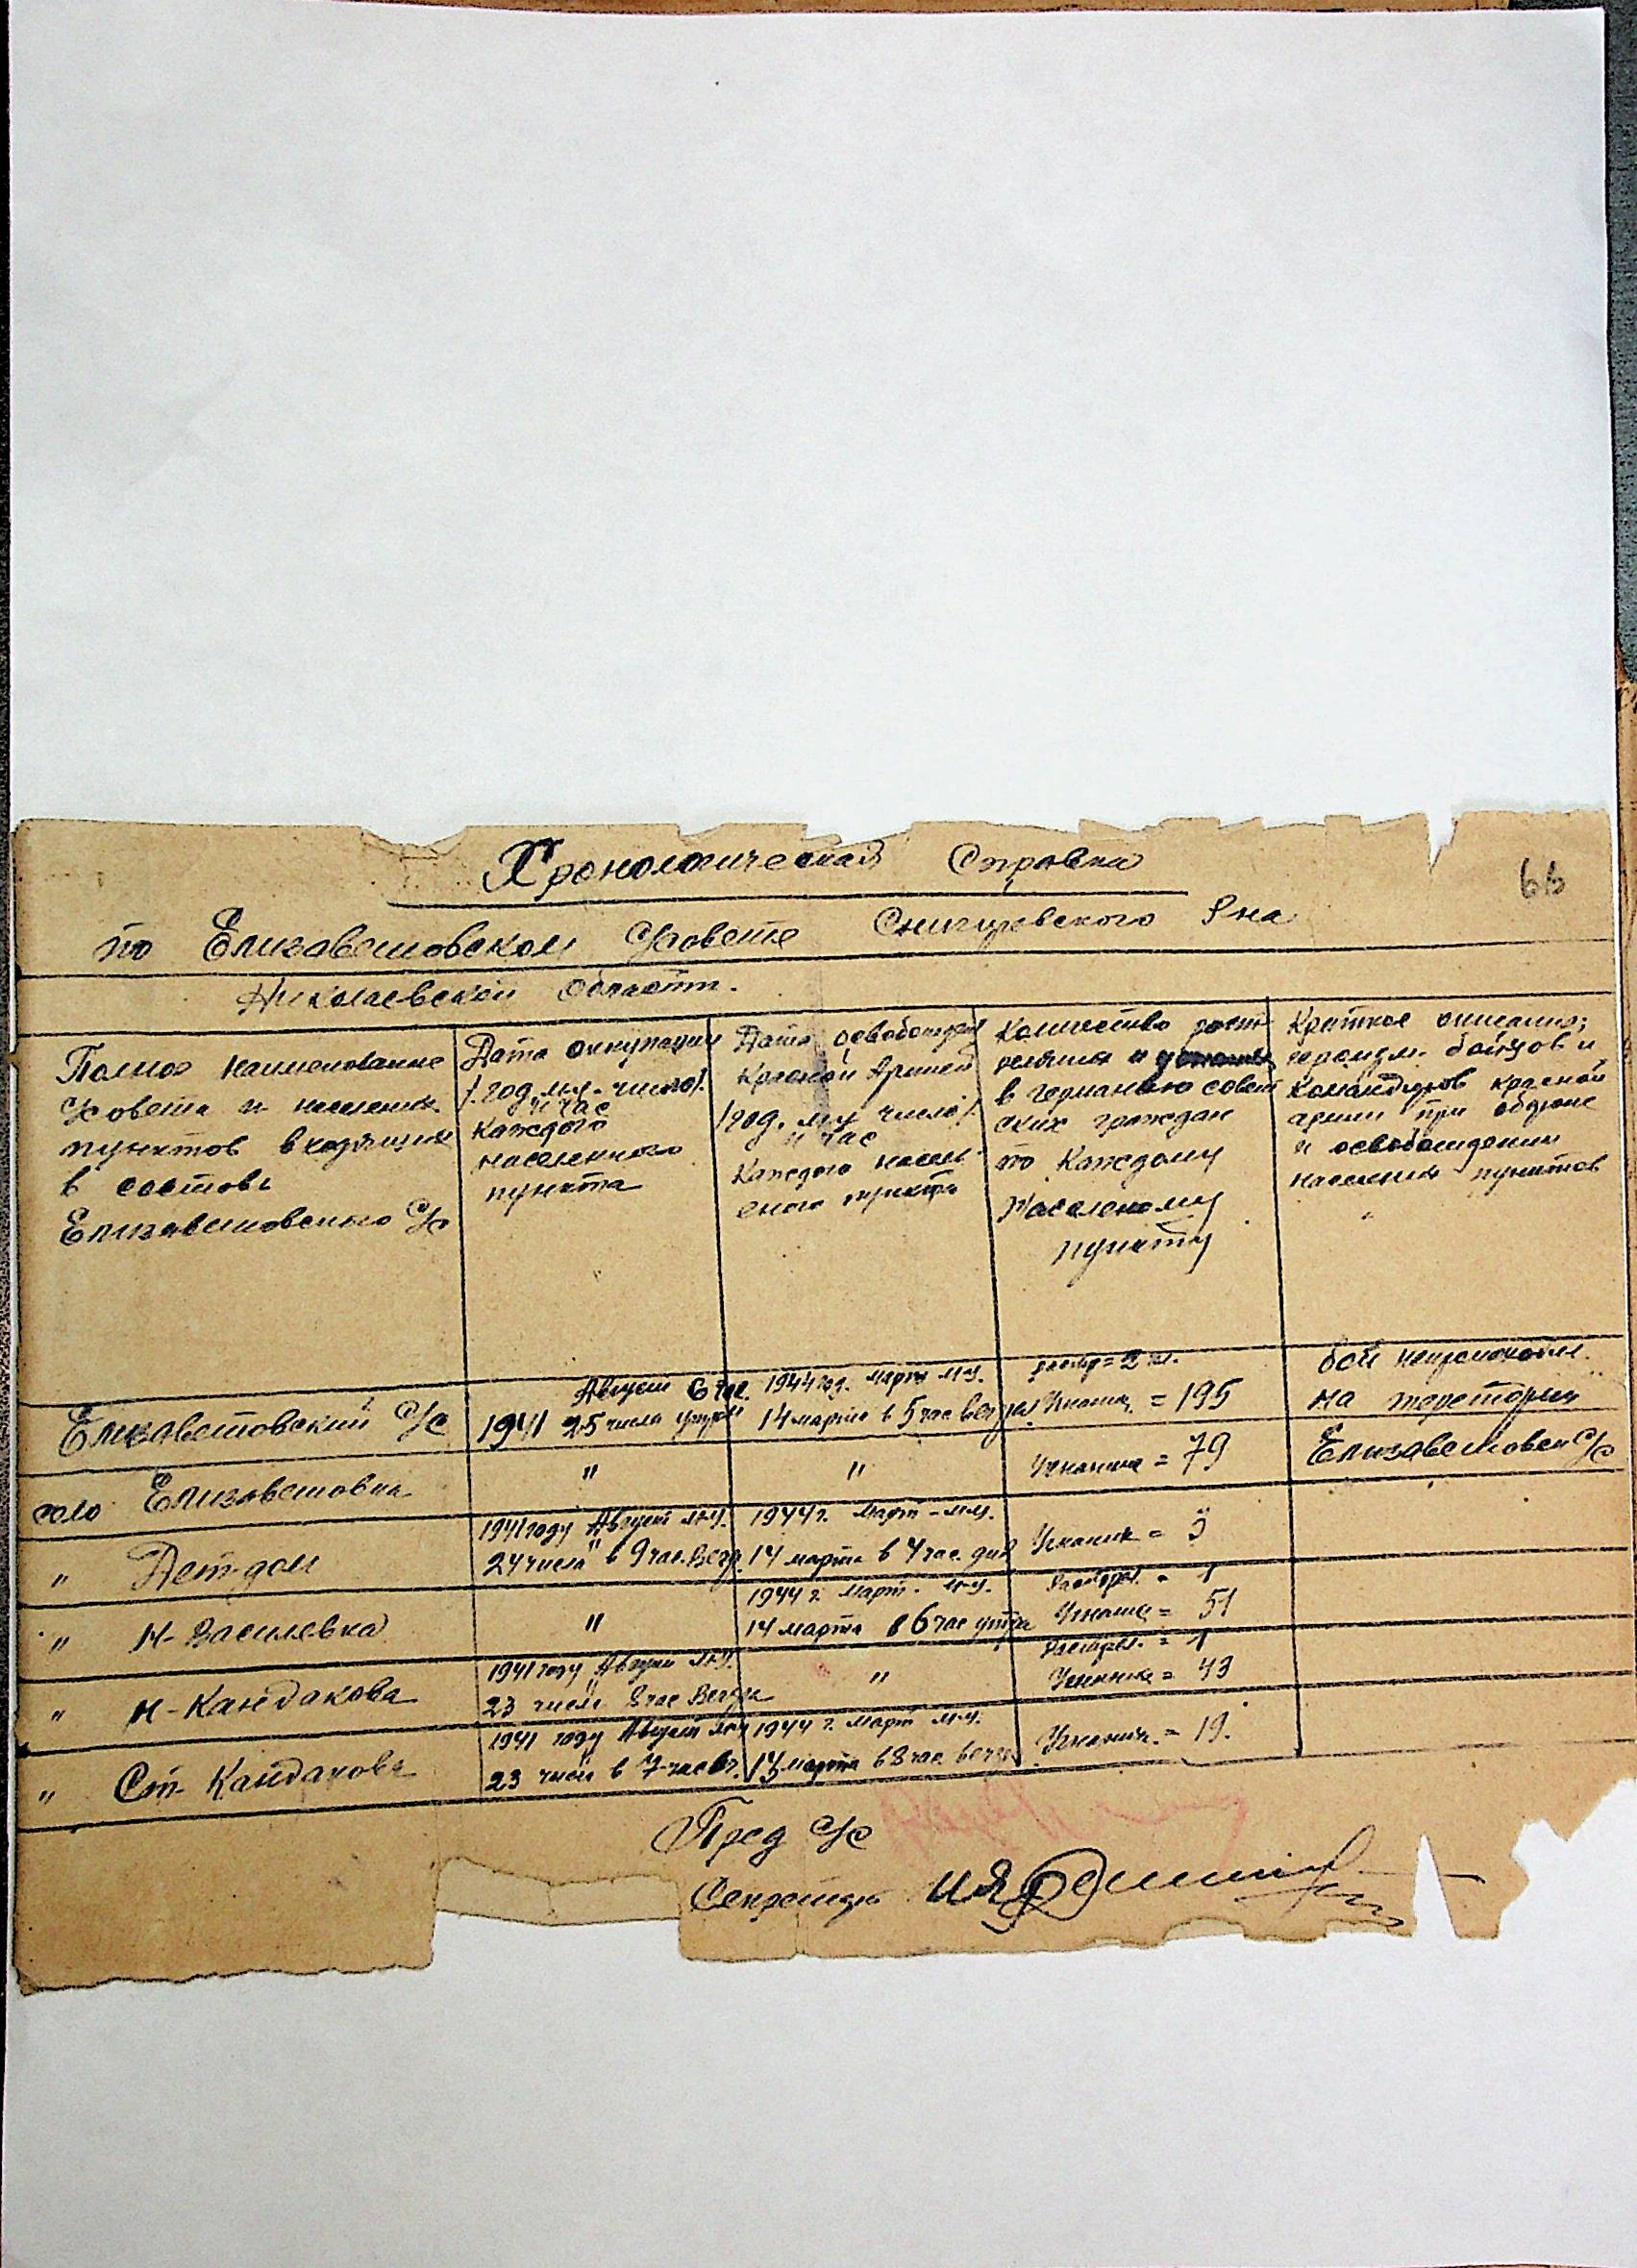 Хронологическая Справка
66
по Елизаветовском С/совете Снигиревского Р-на
Николаевской Области.
Полное Наименование
С/совета и населеных
пунктов входящих
в состав
Елизаветовского С/с
Дата оккупации
/год, м-ц, число/
и час
Каждого
населенного
пункта
Дата освобожден
Красной Армией
/год. м-ц число/
и час
Каждого насел
еного пункта
Количество расст
реляных и
в германию совет
ских граждан
по Каждому
Населеному
пункту
Краткое описание;
героизм. бойцов и
Командиров красной
армии при обороне
и освобождении
населеных пунктов
Елизаветовский С/с
Август 6 час.
1941 25 числа утра
1944 год. март м-ц.
14 марта в 5 час вечера
расстр = 2 чел.
Угнаных = 195
бои непроисходили
на територии
Елизаветовск С/с
село Елизаветовка
"
"
Угнаных = 79
" Дет-дом
1941 году Август м-ц.
24 числа в 9 час. вечр.
1944 г. Март - м-ц.
14 марта в 4 час. дня
Угнаных = 3
" Н-Василевка
"
1944 г. март. м-ц.
14 марта в 6 час утра
Расстрел. = 1
Угнаных = 51
" Н-Кандакова
1941 году Август м-ц.
23 числа 8 час Вечера
"
Расстрел. = 1
Угнаных = 43
" Ст. Кандакова
1941 году Август м-ц
23 числа в 7 час вч.
1944 г. март м-ц.
13 марта в 8 час. вечр.
Угнаных. = 19.
Пред С/с
Секретарь